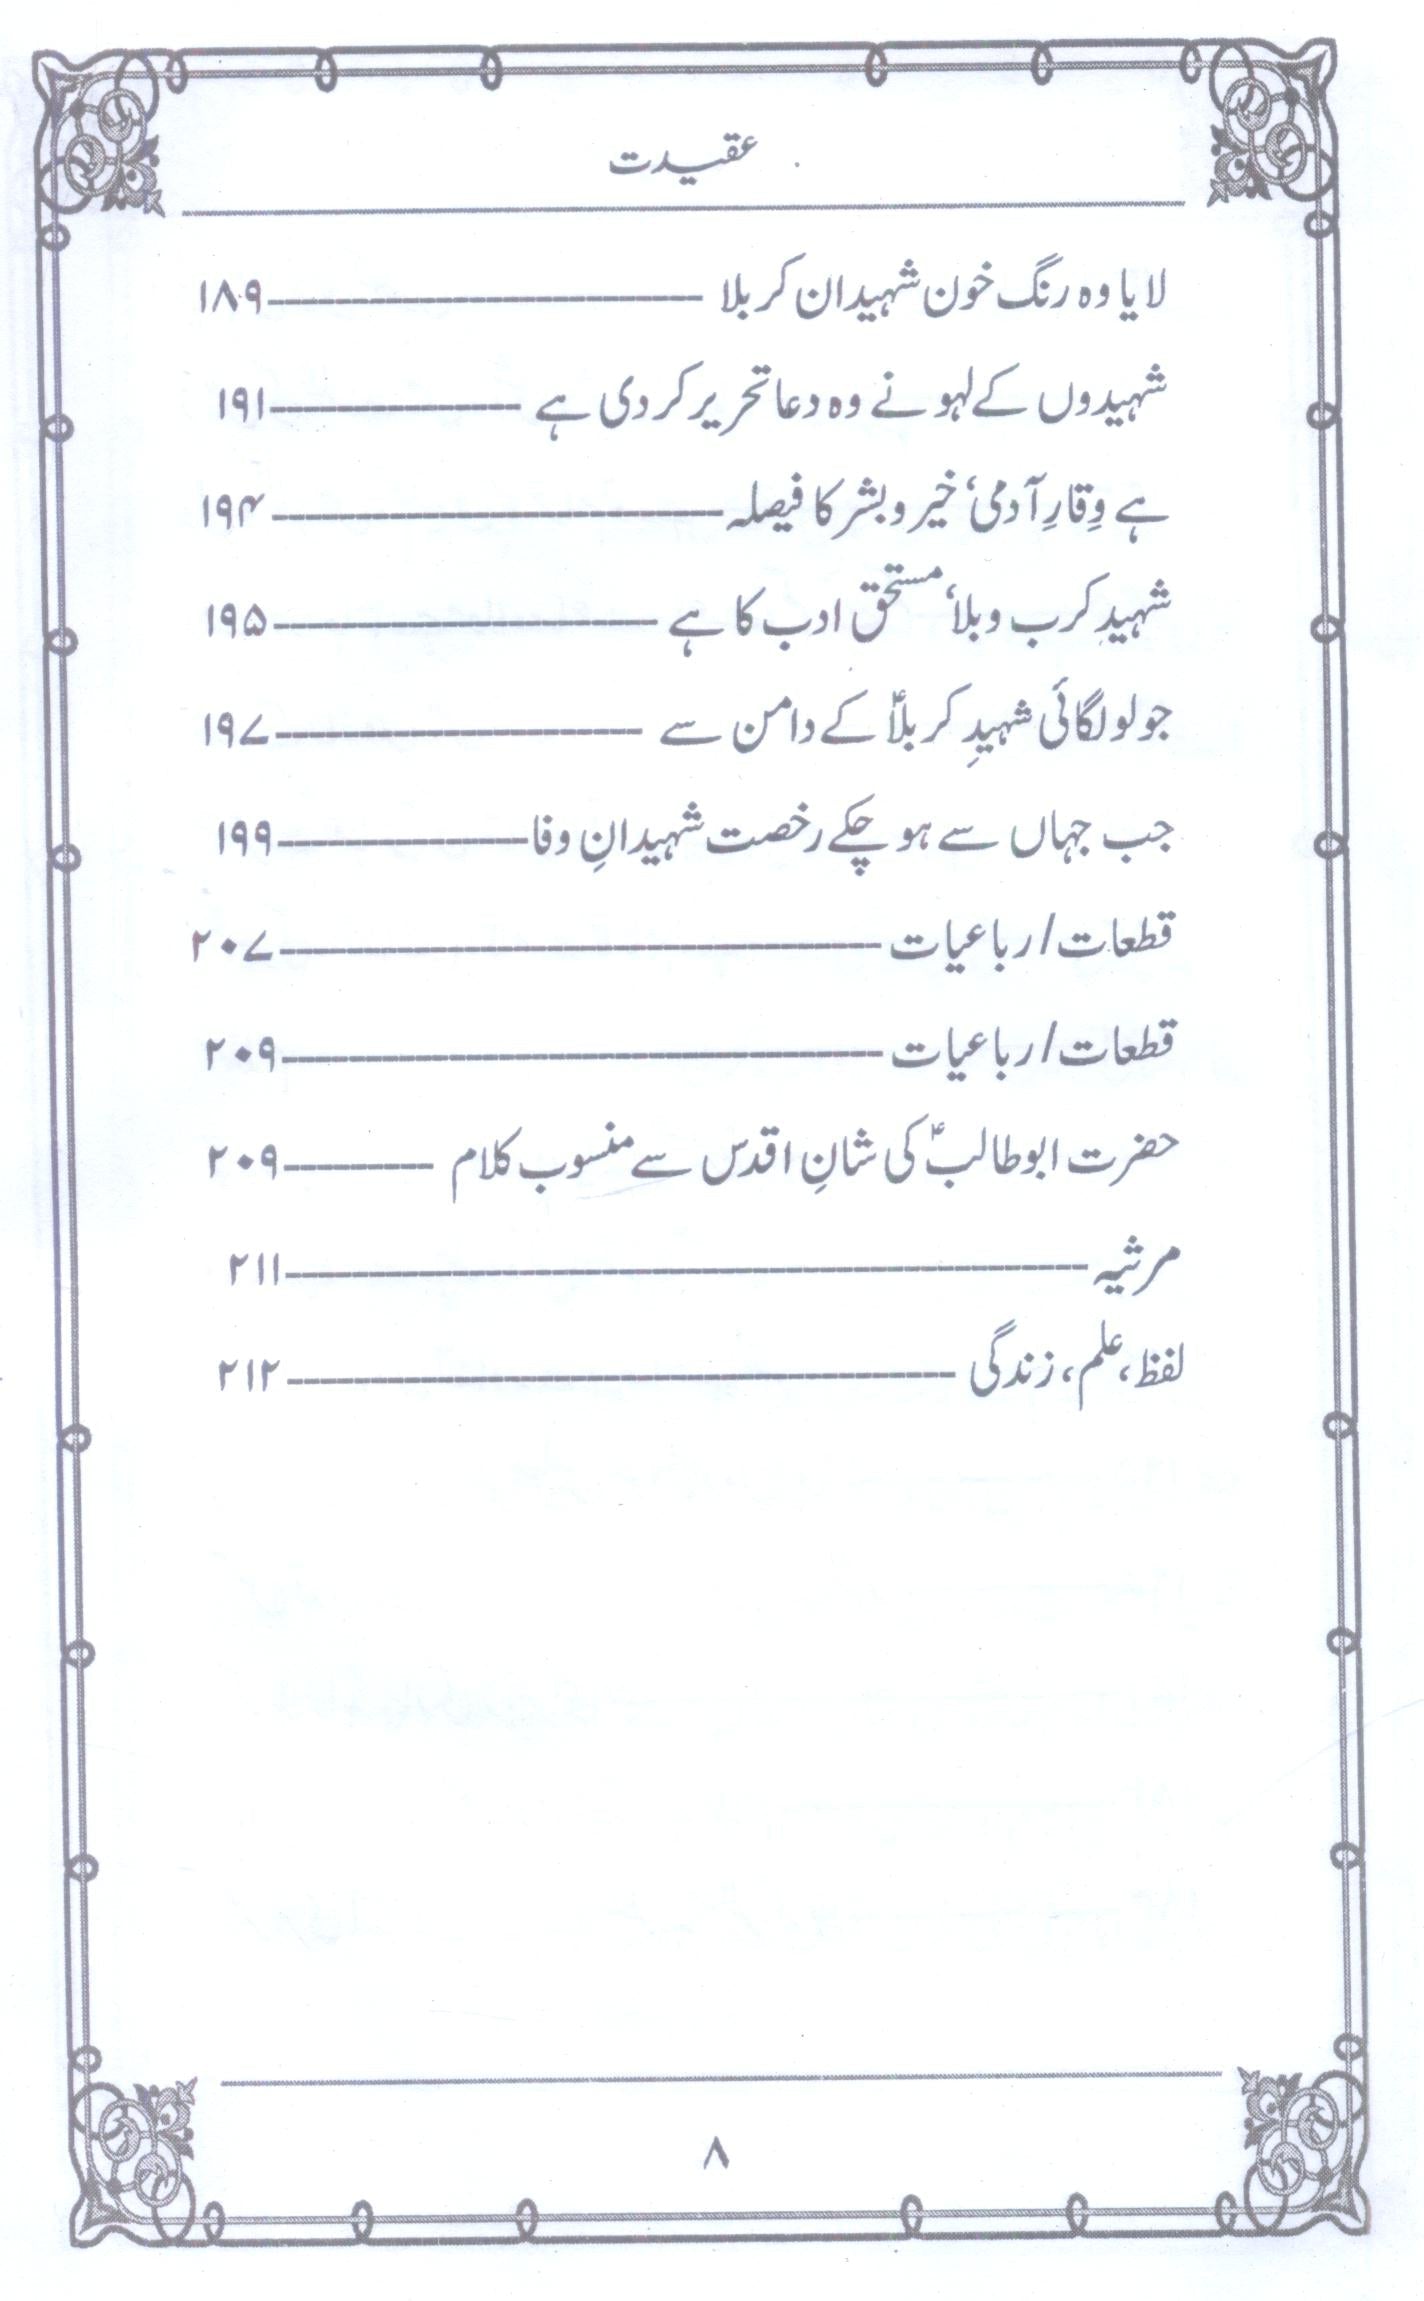 عقیدت
لایا وہ رنگ خون شہیدان کربلا ۱۸۹
شہیدوں کے لہو نے وہ دعا تحریر کر دی ہے ۱۹۱
ہے وِقارِ آدمی، خیر و بشر کا فیصلہ ۱۹۴
شہیدِ کرب و بلا، مستحق ادب کا ہے ۱۹۵
جو لو لگائی شہیدِ کربلاؑ کے دامن سے ۱۹۷
جب جہاں سے ہو چکے رخصت شہیدانِ وفا ۱۹۹
قطعات/رباعیات ۲۰۷
قطعات/رباعیات ۲۰۹
حضرت ابوطالبؑ کی شانِ اقدس سے منسوب کلام ۲۰۹
مرثیہ ۲۱۱
لفظ، علم، زندگی ۲۱۲
۸